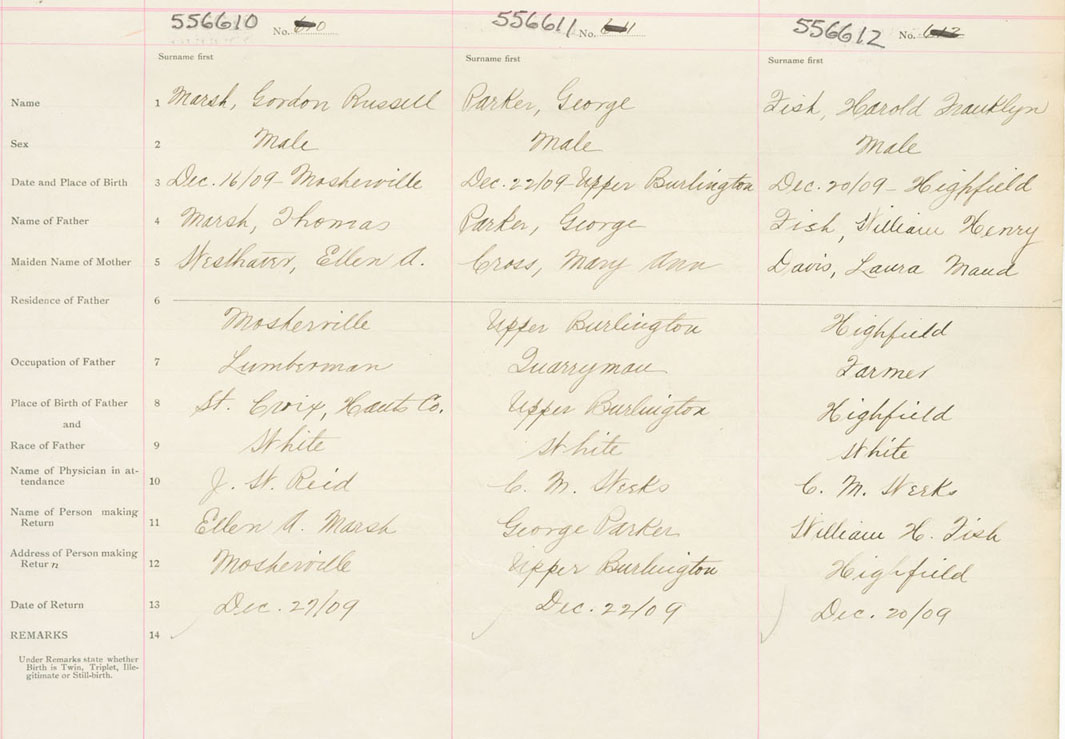 556610 No. 610 556611 No. 611 556612 No. 612
Surname first Surname first Surname first
Name 1 Marsh, Gordon Russell Parker, George Fish, Harold Franklyn
Sex 2 Male Male Male
Date and Place of Birth 3 Dec. 16/09 - Mosherville Dec. 22/09 - Upper Burlington Dec. 20/09 - Highfield
Name of Father 4 Marsh, Thomas Parker, George Fish, William Henry
Maiden Name of Mother 5 Westhaver, Ellen A. Cross, Mary Ann Davis, Laura Maud
Residence of Father 6
Mosherville Upper Burlington Highfield
Occupation of Father 7 Lumberman Quarryman Farmer
Place of Birth of Father 8 St. Croix, Hants Co. Upper Burlington Highfield
and
Race of Father 9 White White White
Name of Physician in at-
tendance 10 J. W. Reid C. M. Weeks C. M. Weeks
Name of Person making
Return 11 Ellen A. Marsh George Parker William H. Fish
Address of Person making
Return 12 Mosherville Upper Burlington Highfield
Date of Return 13 Dec. 27/09 Dec. 22/09 Dec. 20/09
REMARKS 14
Under Remarks state whether
Birth is Twin, Triplet, Ille-
gitimate or Still-birth.